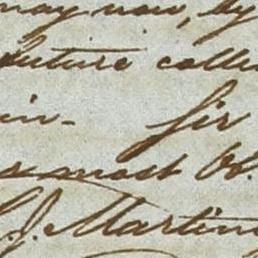 may now, by
future colle
in- Sir
most Ob.
J. Martin